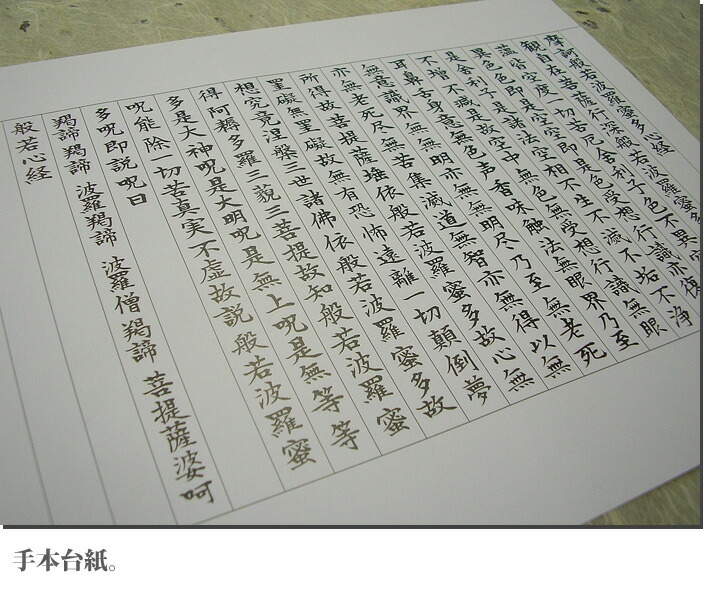 摩訶般若波羅蜜多心経
観自在菩薩行深般若波羅蜜多
蘊皆空度一切苦厄舎利子色不異空
異色色即是空空即是色受想行識亦復
是舎利子是諸法空相不生不滅不垢不浄
不増不減是故空中無色無受想行識無眼
耳鼻舌身意無色声香味触法無眼界乃至
無意識界無無明亦無無明尽乃至無老死
亦無老死尽無苦集滅道無智亦無得以無
所得故菩提薩埵依般若波羅蜜多故心無
罣礙無罣礙故無有恐怖遠離一切顛倒夢
想究竟涅槃三世諸佛依般若波羅蜜多故
得阿耨多羅三藐三菩提故知般若波羅蜜
多是大神呪是大明呪是無上呪是無等等
呪能除一切苦真実不虚故説般若波羅蜜
多呪即説呪曰
羯諦羯諦 波羅羯諦 波羅僧羯諦 菩提薩婆呵
般若心経
手本台紙。